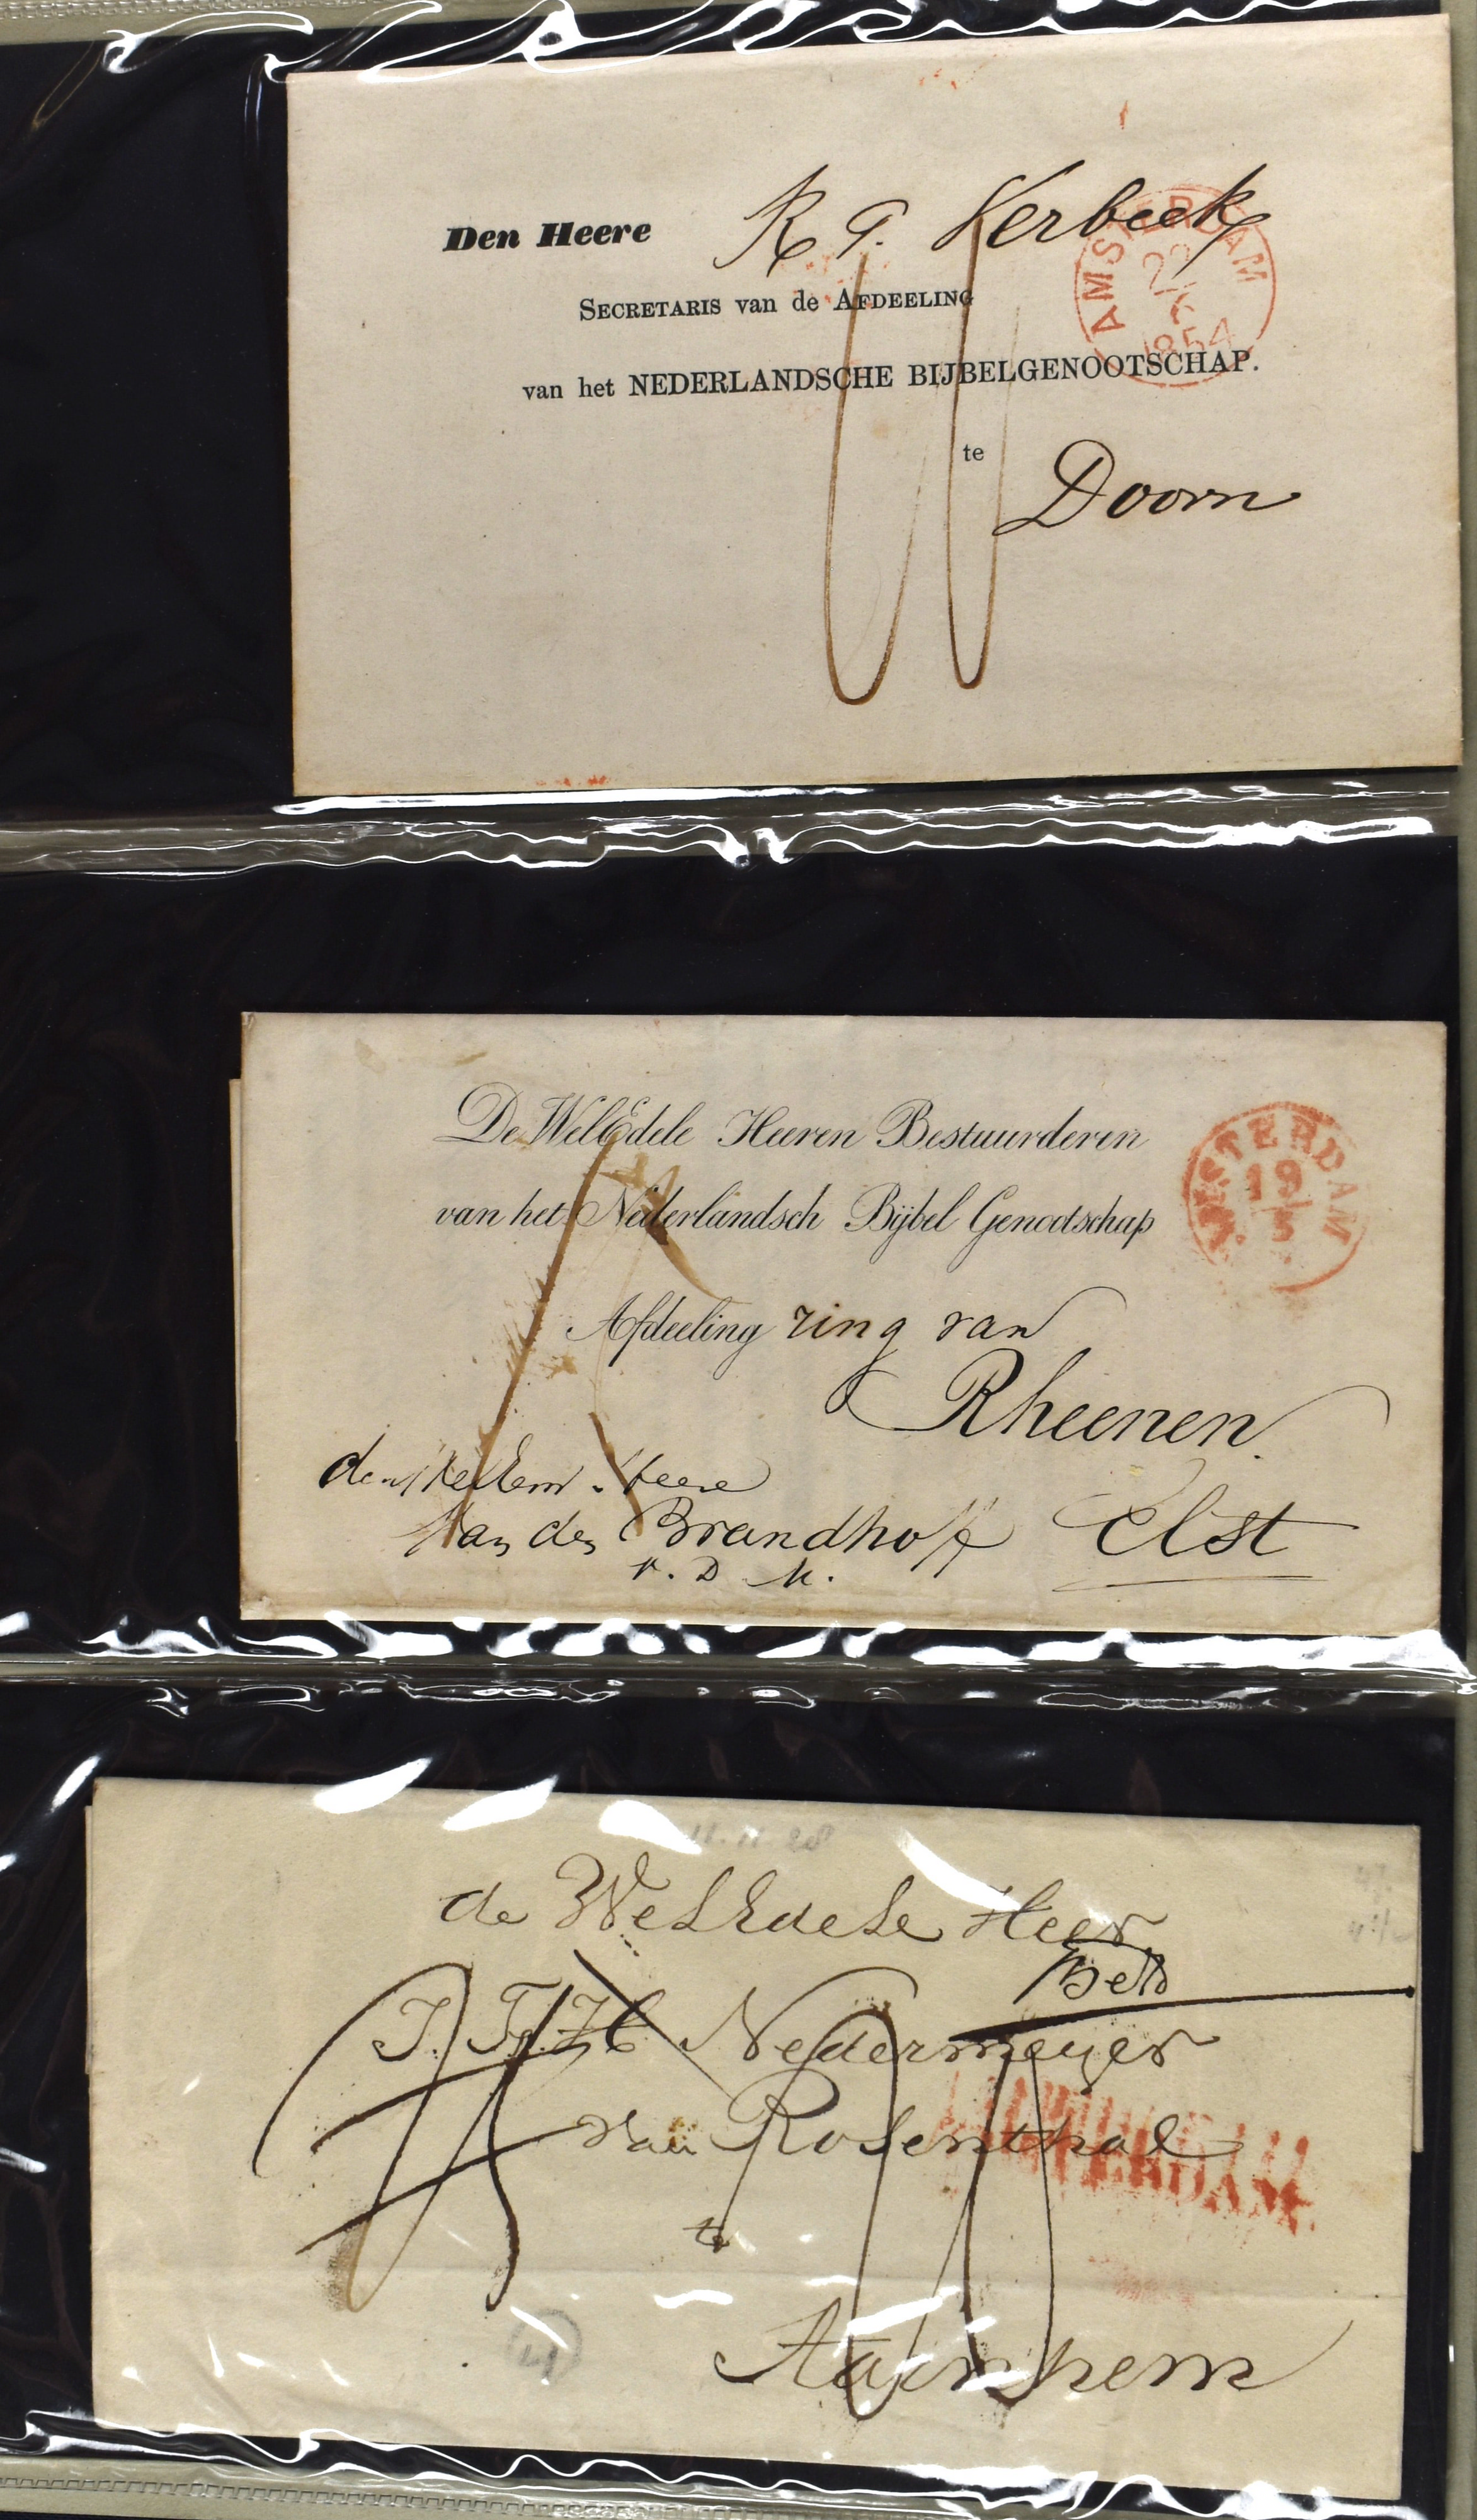 Den Heere R. G. Verbeek
SECRETARIS van de AFDEELING
van het NEDERLANDSCHE BIJBELGENOOTSCHAP.
te
Doorn
AMSTERDAM
1854
De WelEdele Heeren Bestuurderen
van het Nederlandsch Bijbel Genootschap
Afdeeling ring van
Rheenen.
Heere
van den Brandhoff Elst
V. D. M.
AMSTERDAM
19/5
11.11.28
de WelEdele Heer
Nedermeyer
van Rosenthal
te
Aarnhem
TERDAM